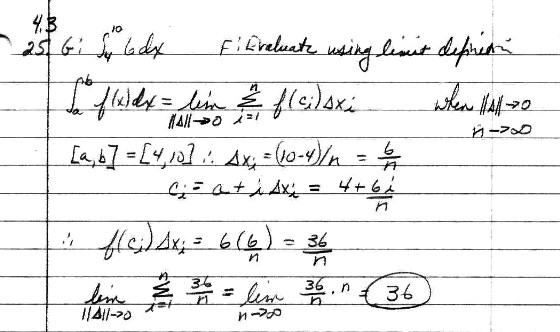 4.3
25. G: ∫₄¹⁰ 6dx F: Evaluate using limit definition
∫ₐᵇ f(x)dx = lim ‖Δ‖→0 Σ i=1 n f(ci)Δxi when ‖Δ‖→0 n→∞
[a,b] = [4,10] ∴ Δxi = (10-4)/n = 6/n
ci = a + i Δxi = 4 + 6i/n
∴ f(ci)Δxi = 6(6/n) = 36/n
lim ‖Δ‖→0 Σ i=1 n 36/n = lim n→∞ 36/n · n = 36